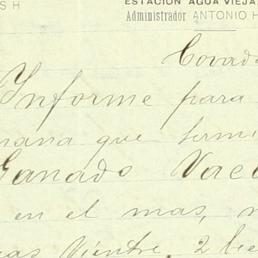 S H
ESTACION AGUA VIEJA
Administrador ANTONIO H
Covad
Informe para
mana que termi
Ganado Vac
en el mas, n
cas Vientre, 2